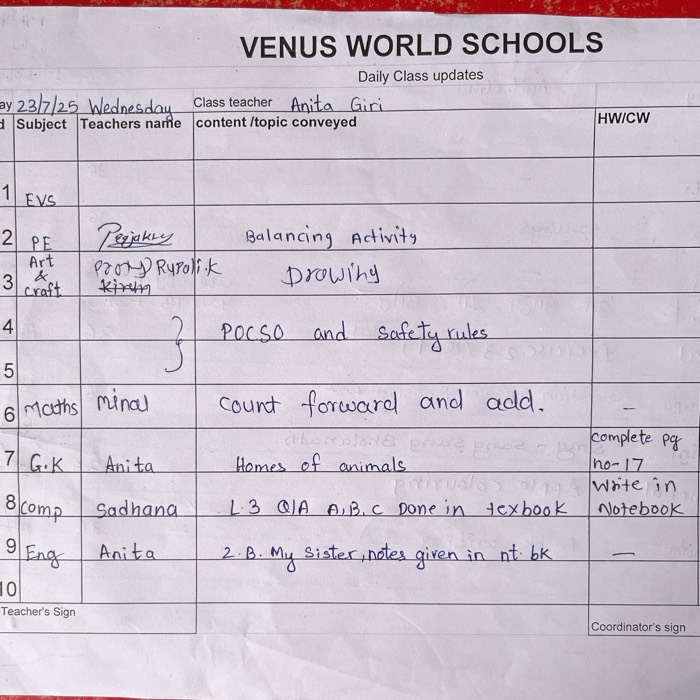 VENUS WORLD SCHOOLS
Daily Class updates
ay 23/7/25 Wednesday Class teacher Anita Giri
d Subject Teachers name content /topic conveyed HW/CW
1 EVS
2 PE Balancing Activity
3 Art & craft Drowing
4 POCSO and safety rules
5
6 Maths Minal Count forward and add. -
7 G.K Anita Homes of animals Complete pg no-17
8 Comp Sadhana L.3 Q/A A,B,C Done in texbook Write in Notebook
9 Eng Anita 2.B. My Sister, notes given in nt. bk -
10
Teacher's Sign
Coordinator's sign